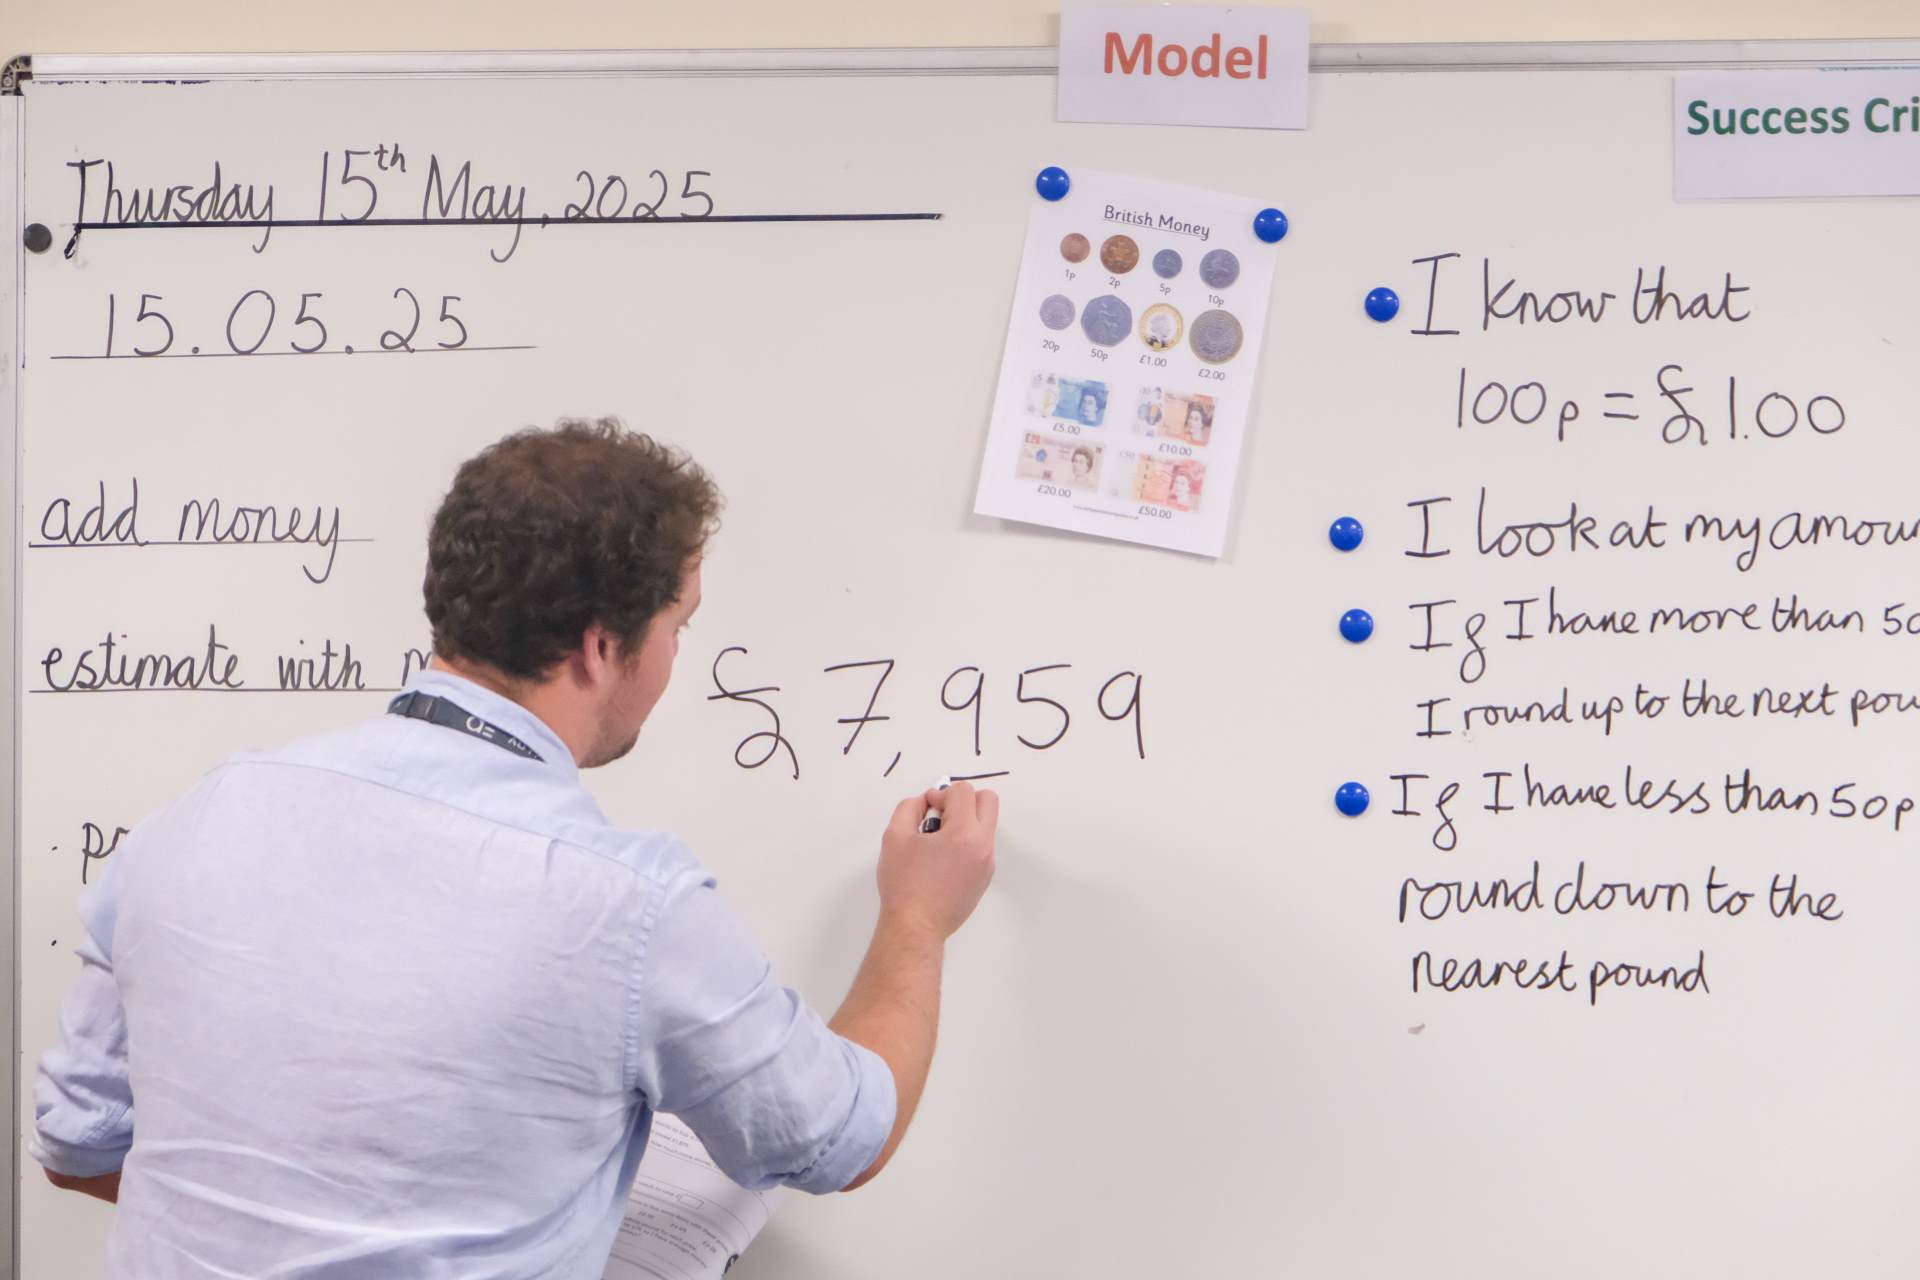 Model
Success Cri
Thursday 15th May, 2025
15.05.25
add money
estimate with
British Money
1p 2p 5p 10p
20p 50p £1.00 £2.00
£5.00 £10.00
£20.00 £50.00
£7,959
I know that
100p = £1.00
I look at my amoun
If I have more than 50
I round up to the next pou
If I have less than 50p
round down to the
nearest pound